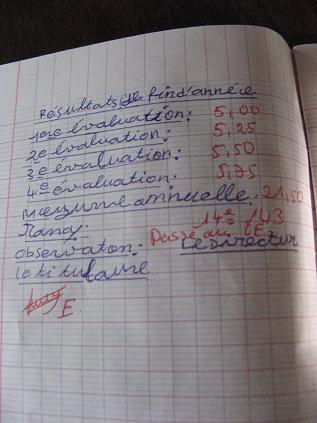 Résultats de fin d'année
1ere évaluation: 5,00
2e évaluation: 5,25
3e évaluation: 5,50
4e évaluation: 5,75
Moeyenne annuelle: 21,50
Rang: 14e / 43
Observation: Passe au CE
Le titulaire Le Directeur
E.